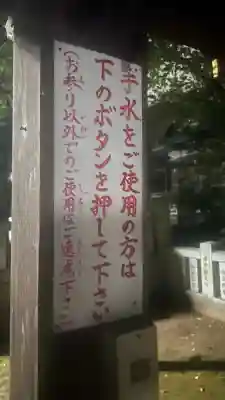 手水をご使用の方は
下のボタンを押して下さい
(お参り以外でのご使用はご遠慮下さい)